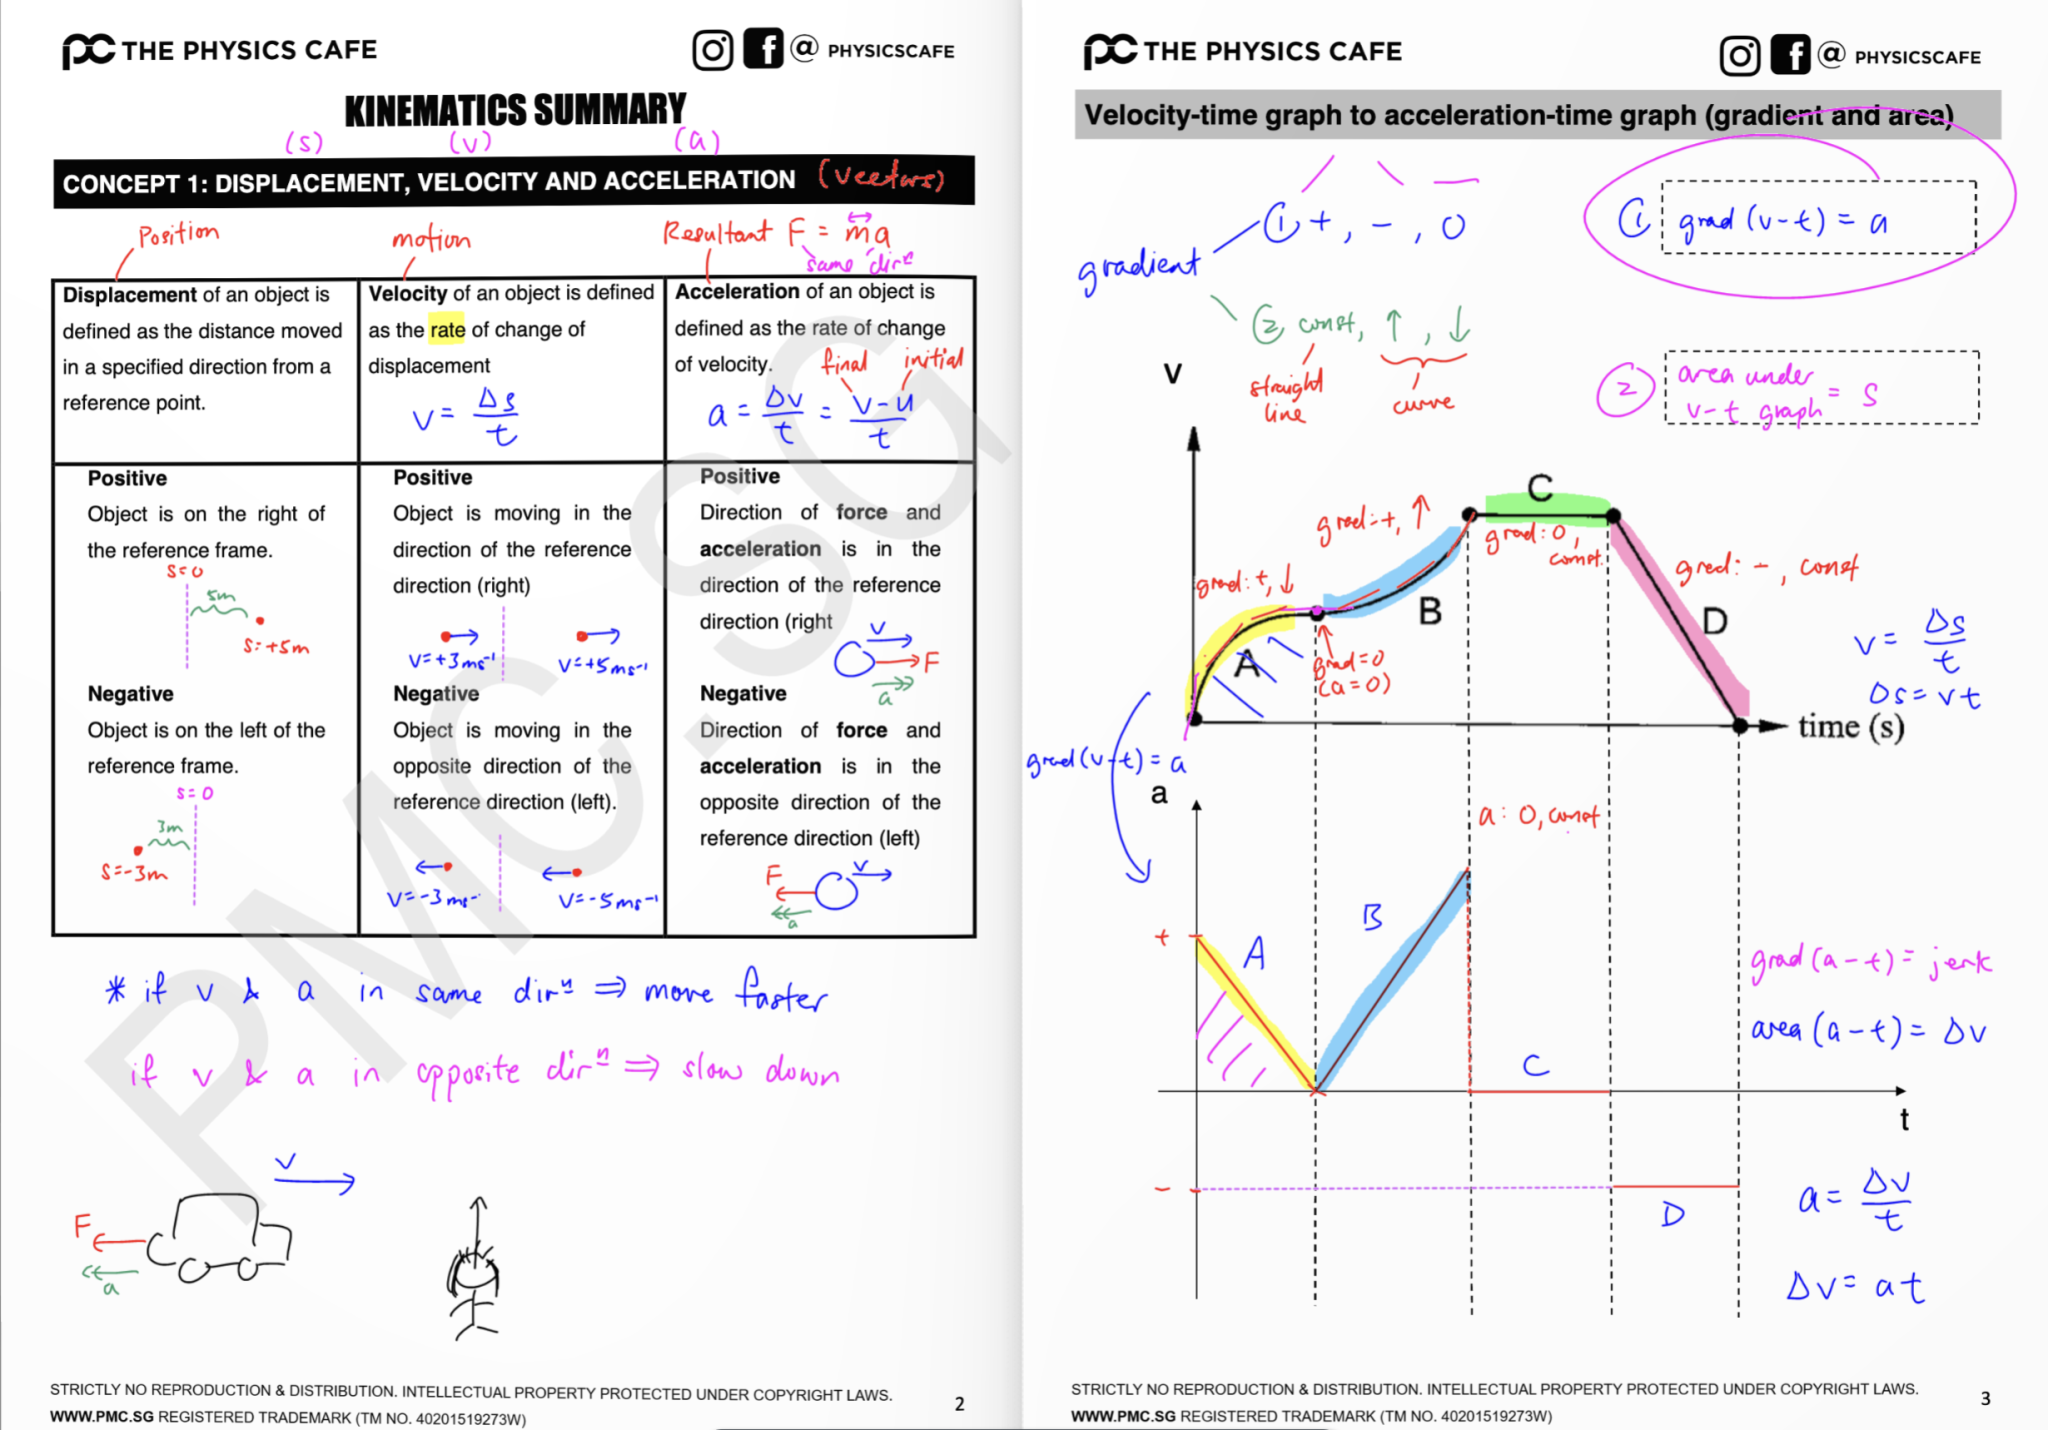 THE PHYSICS CAFE
@ PHYSICSCAFE
KINEMATICS SUMMARY
(s) (v) (a)
CONCEPT 1: DISPLACEMENT, VELOCITY AND ACCELERATION (vectors)
Position
motion
Resultant F = ma
same dirⁿ
Displacement of an object is
defined as the distance moved
in a specified direction from a
reference point.
Velocity of an object is defined
as the rate of change of
displacement
v = Δs/t
Acceleration of an object is
defined as the rate of change
of velocity.
final initial
a = Δv/t = v-u/t
Positive
Object is on the right of
the reference frame.
s=0
5m
s=+5m
Negative
Object is on the left of the
reference frame.
s=0
3m
s=-3m
Positive
Object is moving in the
direction of the reference
direction (right)
v=+3ms⁻¹ v=+5ms⁻¹
Negative
Object is moving in the
opposite direction of the
reference direction (left).
v=-3ms⁻ v=-5ms⁻¹
Positive
Direction of force and
acceleration is in the
direction of the reference
direction (right
v
F
a
Negative
Direction of force and
acceleration is in the
opposite direction of the
reference direction (left)
F v
a
* if v & a in same dirⁿ ⇒ move faster
if v & a in opposite dirⁿ ⇒ slow down
v
F
a
PMC.SG
STRICTLY NO REPRODUCTION & DISTRIBUTION. INTELLECTUAL PROPERTY PROTECTED UNDER COPYRIGHT LAWS.
WWW.PMC.SG REGISTERED TRADEMARK (TM NO. 40201519273W)
2
THE PHYSICS CAFE
@ PHYSICSCAFE
Velocity-time graph to acceleration-time graph (gradient and area)
gradient
① +, -, 0
② const, ↑, ↓
straight
line
curve
① grad (v-t) = a
② area under
v-t graph = s
v
grad: +, ↓
grad: +, ↑
grad: 0,
const.
grad: -, const
A
B
C
D
grad=0
(a=0)
time (s)
v = Δs/t
Δs = vt
grad(v-t) = a
a
a: 0, const
+
A
B
C
D
-
t
grad(a-t) = jerk
area(a-t) = Δv
a = Δv/t
Δv = at
STRICTLY NO REPRODUCTION & DISTRIBUTION. INTELLECTUAL PROPERTY PROTECTED UNDER COPYRIGHT LAWS.
WWW.PMC.SG REGISTERED TRADEMARK (TM NO. 40201519273W)
3